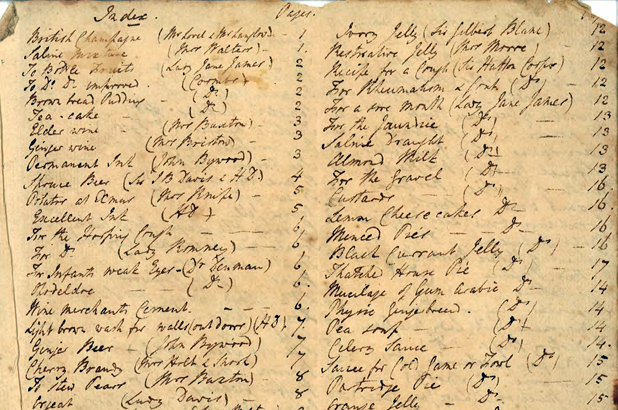 Index. Pages.
British Champagne (Mr Lovel & Mr Taylor) 1
Saline mixture (Mrs Walter) - 1.
To Bottle Fruits (Lady Jane James) 2
To Do Do improved. (Coombe) 2
Brown bread Pudding - (Do) 2
Tea-cake (Do) 2
Elder wine (Mrs Buxton) - 3
Ginger wine (Mrs Brixton) - 3
Permanent Ink (John Bywood) - 3
Spruce Beer (Sir J B Davis & HD.) 4
Potatoe (Mrs Knife) - 5
Excellent Ink (HD) - 5
For the Hooping Cough - - 6
For Do (Lady Romney) - 6
For Infants weak Eyes - (Dr) 6,
Opodeldoc - (Do) - 6.
Wine merchants Cement. - - 6.
Light brown wash for walls (out doors) (HD) 7.
Ginger Beer - (John Bywood) 7
Cherry Brandy (Mrs Holt &) 7
To Stew Pears (Mrs Buxton) 8
Orgeat (Lady Davis) - 8
Ivory Jelly (Sir Gilbert Blane) - 12
Restorative Jelly (Mrs Moore) - 12
Recipe for a Cough (Sir Hutton Cooper) 12
For Rheumatism & Gout (Do) - 12
For a sore mouth (Lady Jane James) 12
For the Jaundice (Do) - 13
Saline Draught (Do) - 13
Almond Milk (Do) - 13
For the Gravel (Do) - 13
Custards (Do) - 16.
Lemon Cheesecakes Do - 16
Minced Pies - Do - 16
Black Currant Jelly (Do) - 16
Thatched House Pie (Do) - 17
Mucilage of Gum Arabic Do - 14
Gingerbread. (Do) 14
Pea soup (Do) - 14.
Celery Sauce - (Do) - 14.
Sauce for Cold Game or Fowl (Do) 15
Partridge Pie (Do) - 15
Orange Jelly - (Do) - 15